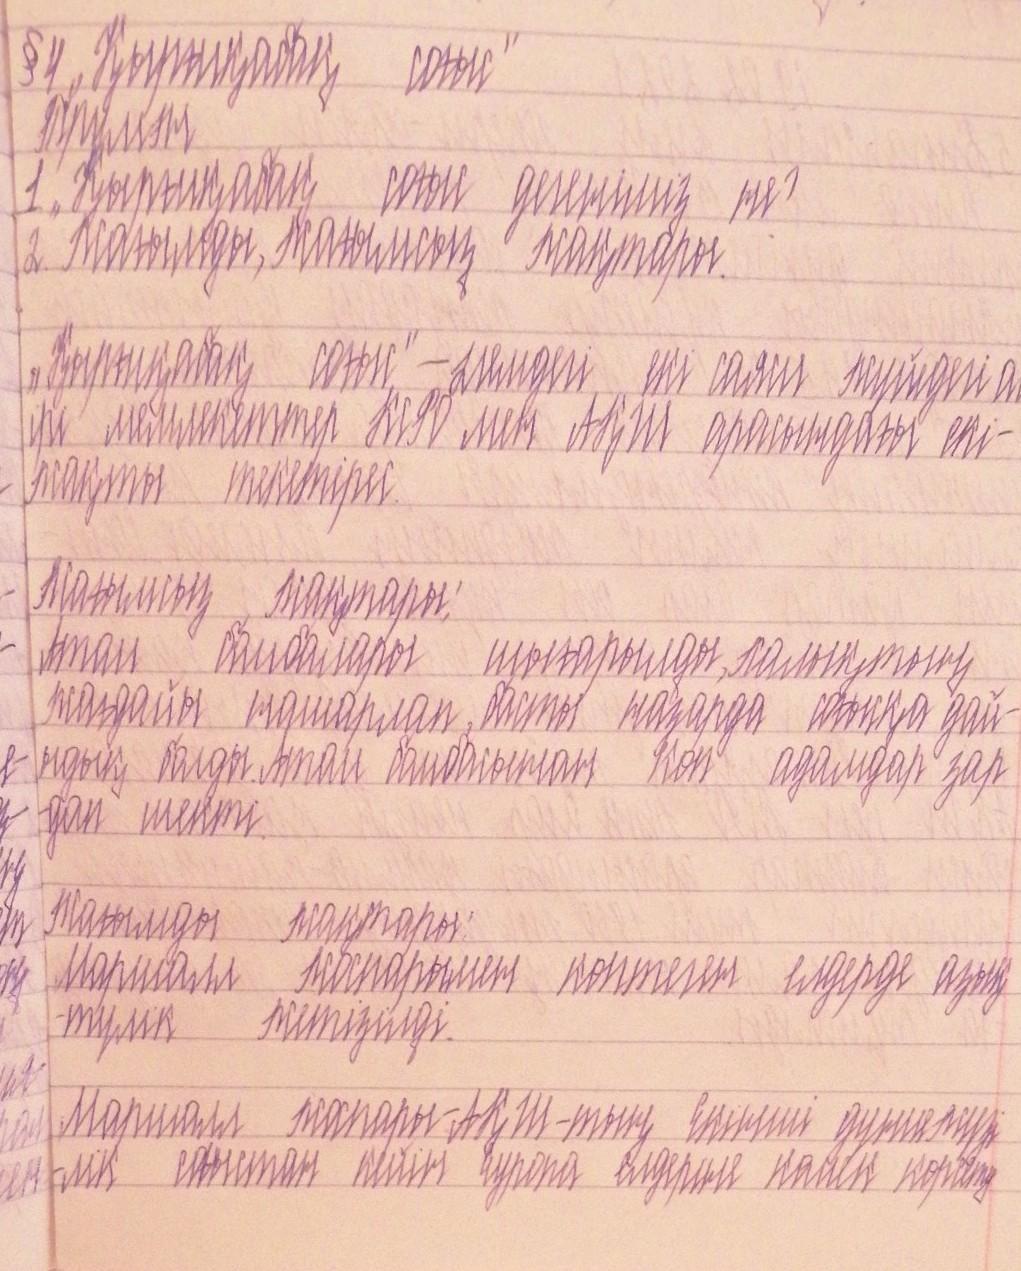 §4 „Қырғиқабақ соғыс"
1. „Қырғиқабақ соғыс дегеніміз не?
2. Жағымды, жағымсыз жақтары.
„Қырғиқабақ соғыс" – әлемдегі екі саяси жүйдегі
мемлекеттер КСРО мен АҚШ арасындағы екі-
жақты текетірес.
Жағымсыз жақтары:
Атом бомбалары шығарылды, халықтың
жағдайы нашарлап, басты назарда соғысқа дай-
ндық болды. Атом бомбасынан көп адамдар зар
дап шекті.
Жағымды жақтары:
Маршалл жоспарымен көптеген елдерде азық
-түлік жеткізілді.
Маршалл жоспары – АҚШ-тың Екінші дүниежүзі
-лік соғыстан кейін Еуропа елдеріне көмек көрсету